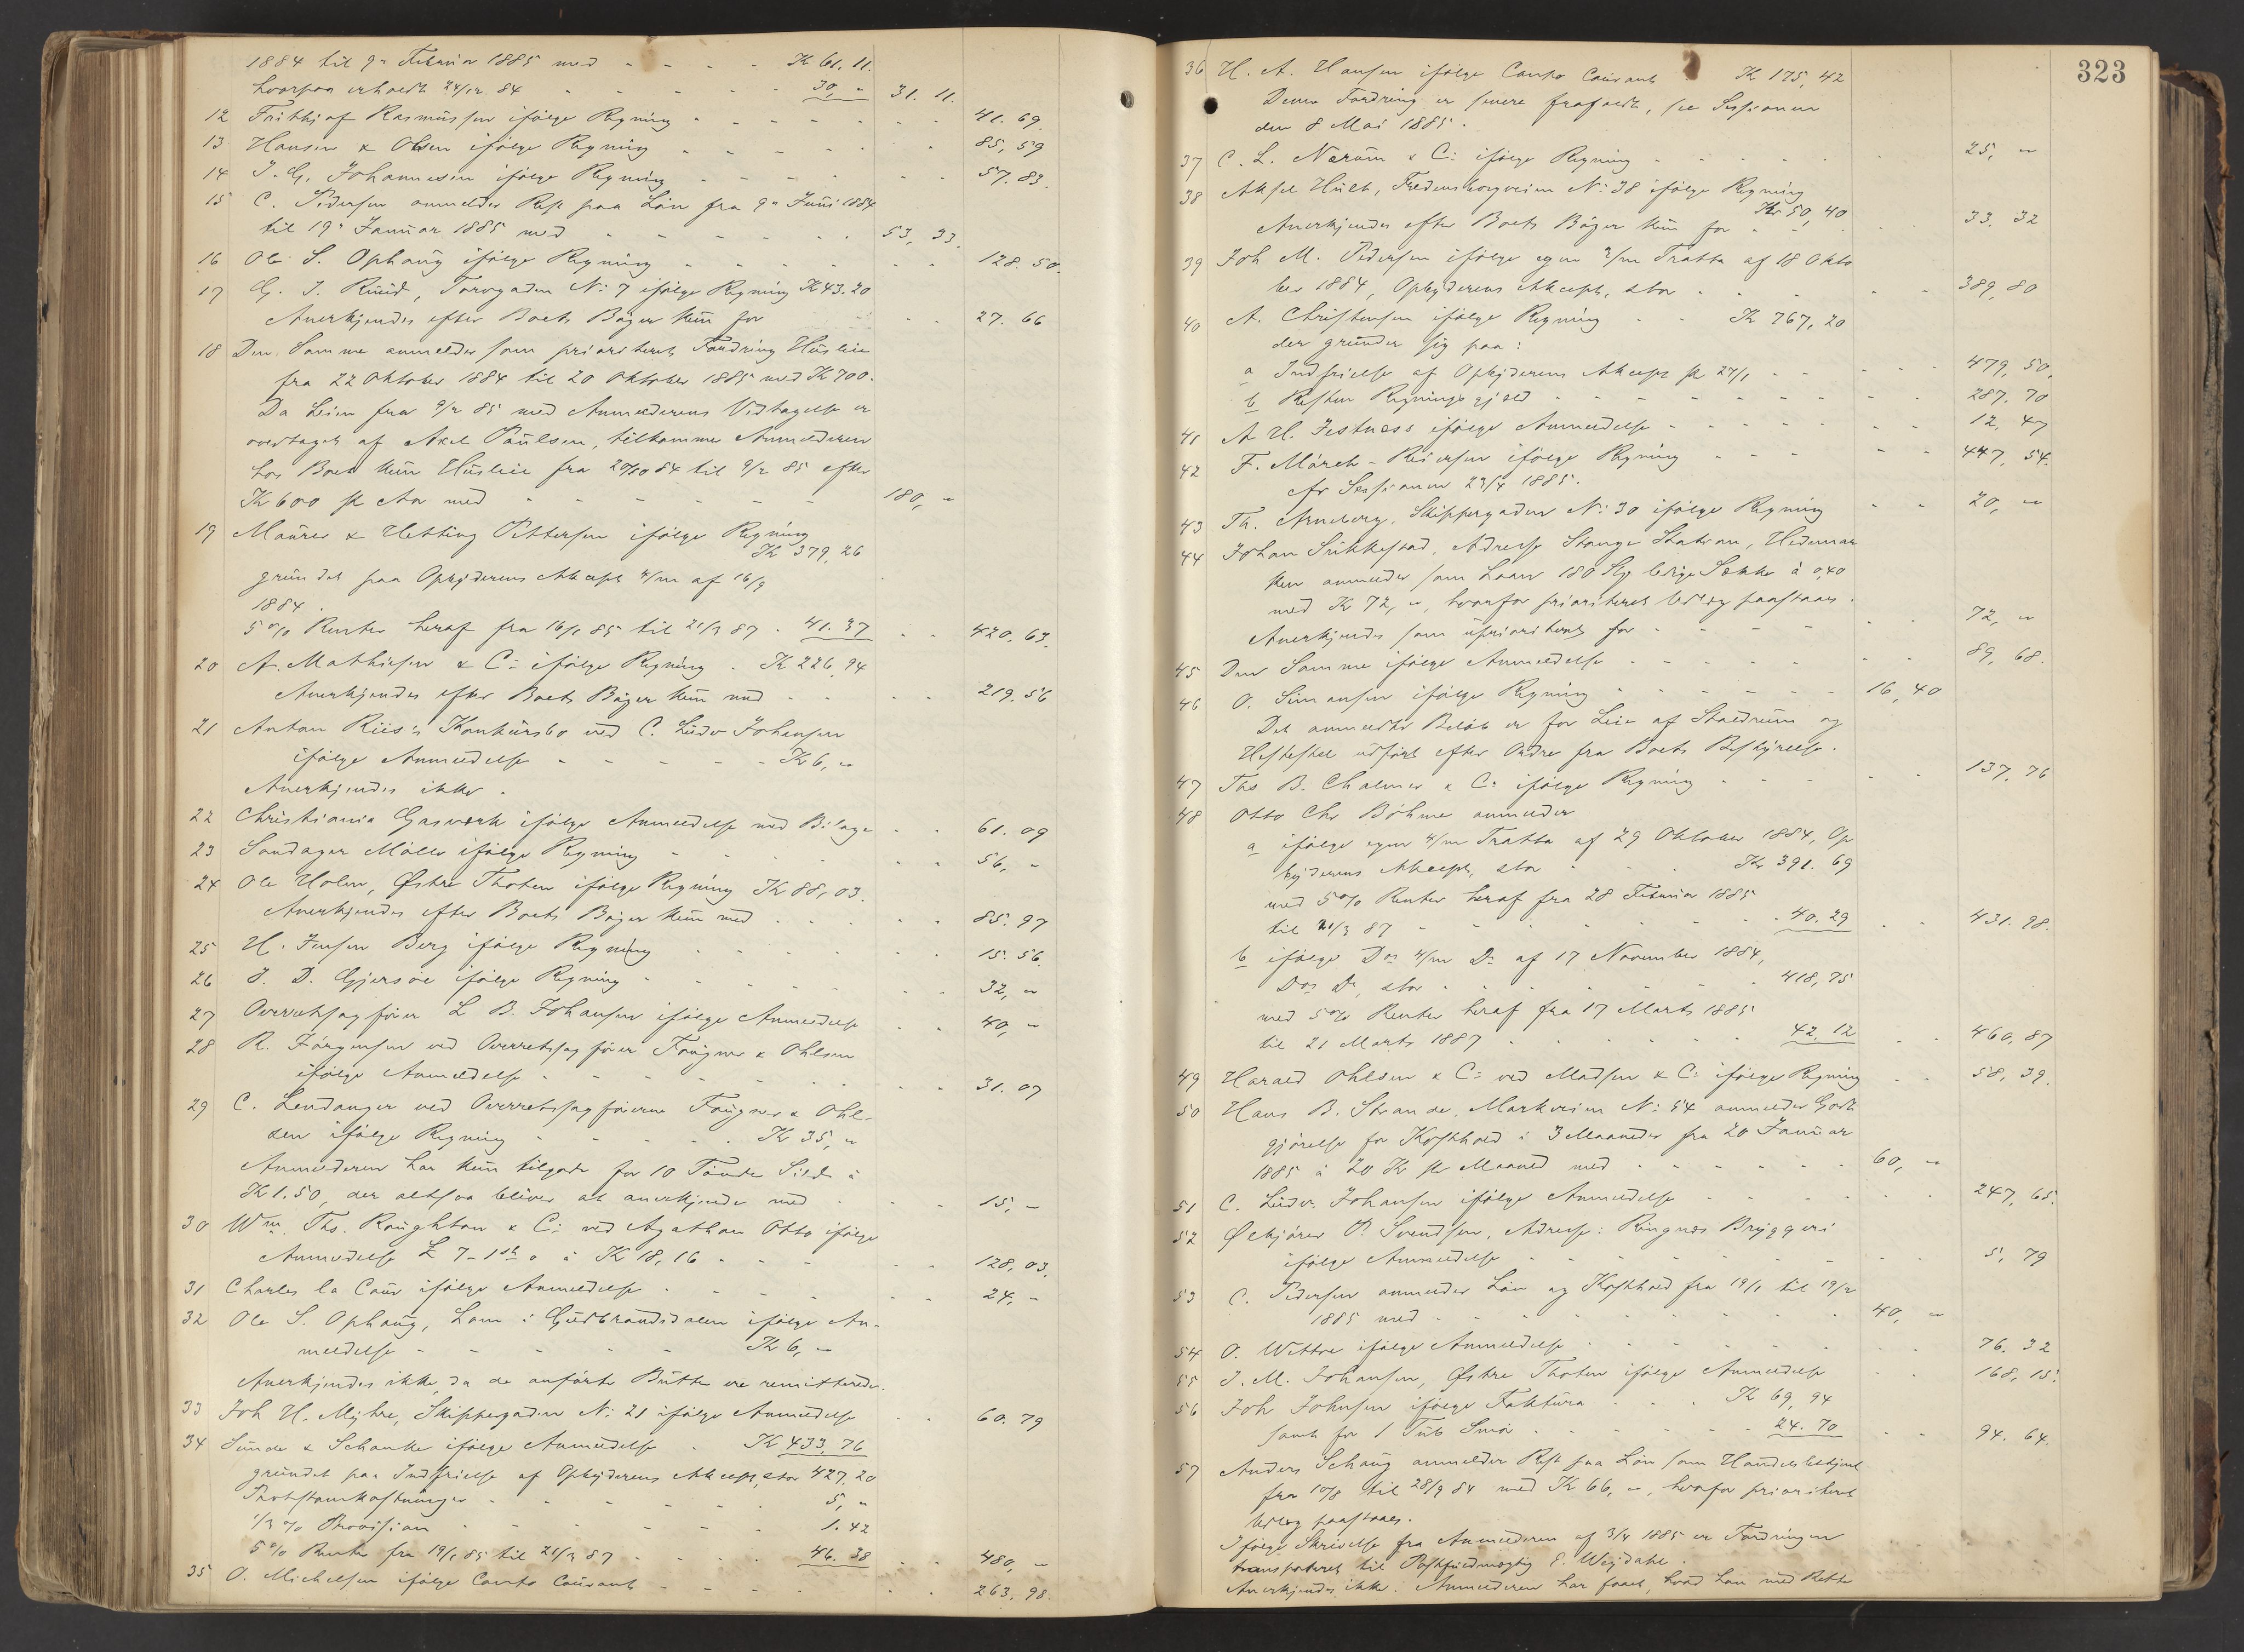 1884 til 9de Februar 1885 med - - - - Kr 61. 11.
hvorpaa erholdt 24/12 84 - - - - 30, " 31. 11.
12 Frithjof Rasmussen ifølge Regning - - - - 41. 69.
13 Hansen & Olsen ifølge Regning - - - - 85, 59
14 J. G. Johannesen ifølge Regning - - - - 57. 83.
15 C. Pedersen anmelder Rest paa Løn fra 9de Juni 1884
til 19de Januar 1885 med - - - - 53, 33.
16 Ole S. Ophaug ifølge Regning - - - - 128. 50.
17 G. J. Ruud, Torvgaden No 7 ifølge Regning Kr 43. 20
Anerkjendes efter Boets Bøger kun for - - 27. 66
18 Den Samme anmelder som prioriteret Fordring Husleie
fra 22 Oktober 1884 til 20 Oktober 1885 med Kr 700.
Da Leien fra 9/2 85 med Anmelderens Vedtagelse er
overtaget af Axel Paulsen, tilkommer Anmelderen
hos Boet kun Husleie fra 20/10 84 til 9/2 85 efter
Kr 600 pr Aar med - - - - 180, "
19 Maurer & Hetting Pettersen ifølge Regning
Kr 379, 26
grundet paa Opbyderens Akcept 4/m af 16/9
1884.
5% Renter heraf fra 16/1 85 til 21/3 87 - 41. 37 - - 420. 63.
20 A. Mathiesen & Co ifølge Regning - Kr 226, 94
Anerkjendes efter Boets Bøger kun med - - 219. 56
21 Anton Riis's Konkursbo ved C. Ludv Johansen
ifølge Anmeldelse - - - - Kr 6, "
Anerkjendes ikke.
22 Christiania Gasværk ifølge Anmeldelse med Bilage - - 61. 09
23 Sandager Mølle ifølge Regning - - - - 56, "
24 Ole Holm, Østre Thoten ifølge Regning Kr 88, 03.
Anerkjendes efter Boets Bøger kun med - - 85. 97
25 H. Jensen Berg ifølge Regning - - - - 15. 56.
26 J. D. Gjersøe ifølge Regning - - - - 32, "
27 Overretssagfører L B. Johansen ifølge Anmeldelse - - 40, "
28 R. Jørgensen ved Overretssagfører Fougner & Ohlsen
ifølge Anmeldelse - - - - 31. 07
29 C. Lendanger ved Overretssagførerne Fougner & Ohl-
sen ifølge Regning - - - - Kr 35, "
Anmelderen har kun tilgode for 10 Tønder Sild à
Kr 1. 50, der altsaa bliver at anerkjende med - - 15, "
30 Wm Ths. Roughton & Co ved Agathon Otto ifølge
Anmeldelse £ 7 - 1 sh 0 à Kr 18, 16 - - - - 128, 03.
31 Charles la Cour ifølge Anmeldelse - - - - 24, "
32 Ole S. Ophaug, Lom i Gudbrandsdalen ifølge An-
meldelse - - - - Kr 6, "
Anerkjendes ikke, da de anførte Bøtter ere remitterede.
33 Joh H. Myhre, Skippergaden No 21 ifølge Anmeldelse - - 60. 79
34 Sunde & Schanke ifølge Anmeldelse - Kr 433, 76
grundet paa Indfrielse af Opbyderens Akcept, stor 427, 20
Protestomkostninger - - - - 5, "
1/3 % Provision - - - - 1. 42
5% Renter fra 19/1 85 til 21/3 87 - - - - 46. 38 - - 480, "
35 O. Michelsen ifølge Conto Courant - - - - 263, 98.
323
36 H. A. Hansen ifølge Conto Courant Kr 175, 42
Denne Fordring er senere frafaldt, se Sessionen
den 8 Mai 1885.
37 C. L. Nærum & Co ifølge Regning - - - - 25, "
38 Aksel Hult, Fredensborgveien No 38 ifølge Regning
Kr 50, 40
Anerkjendes efter Boets Bøger kun for - - 33. 32
39 Joh M. Pedersen ifølge egen 3/m Tratta af 18 Okto
ber 1884, Opbyderens Akcept, stor - - - - 389, 80
40 A. Christensen ifølge Regning - - Kr 767, 20
der grunder sig paa:
a Indfrielse af Opbyderens Akcept pr 27/1 - - - - 479, 50,
b Resten Regningsgjæld - - - - 287. 70
41 A H. Festness ifølge Anmeldelse - - - - 12, 47
42 F. Mørch-Reiersen ifølge Regning - - - - 447, 54.
cfr Sessionen 23/4 1885.
43 Th. Arneberg, Skippergaden No 30 ifølge Regning - - 20, "
44 Johan Sukkestad, Adresse Stange Station, Hedemar
ken anmelder som Laan 180 Stk ledige Sække à 0,40
med Kr 72, ", hvorfor prioriteret Udlæg paastaaes.
Anerkjendes som uprioriteret for - - - - 72, "
45 Den Samme ifølge Anmeldelse - - - - 89, 68.
46 O. Simonsen ifølge Regning - - - - 16, 40
Det anmeldte Beløb er for Leie af Staldrum og
Hestestel udført efter Ordre fra Boets Bestyrelse.
47 Ths B. Chalmer & Co ifølge Regning - - - - 137, 76
48 Otto Chr Bøhme anmelder
a ifølge egen 4/m Tratta af 29 Oktober 1884, Op
byderens Akcept, stor - - Kr 391. 69
med 5% Renter heraf fra 28 Februar 1885
til 21/3 87 - - - - 40. 29 - - 431. 98.
b ifølge Do 4/m Do af 17 November 1884,
Dos Do, stor - - - - 418, 75
med 5% Renter heraf fra 17 Marts 1885
til 21 Marts 1887 - - - - 42, 12 - - 460, 87
49 Harald Ohlsen & Co ved Madsen & Co ifølge Regning - - 58, 39.
50 Hans B. Strande, Markveien No 54 anmelder Godt
gjørelse for Kosthold i 3 Maaneder fra 20 Januar
1885 à 20 Kr pr Maaned med - - - - 60, "
51 C. Ludv. Johansen ifølge Anmeldelse - - - - 247, 65.
52 Ølkjører P. Svendsen, Adresse: Ringnæs Bryggeri
ifølge Anmeldelse - - - - 5, 79
53 C. Pedersen anmelder Løn og Kosthold fra 19/1 til 19/2
1885 med - - - - 40, "
54 O. Wettre ifølge Anmeldelse - - - - 76. 32
55 J. M. Johansen, Østre Thoten ifølge Anmeldelse - - 168, 15.
56 Joh Johnsen ifølge Faktura - - - Kr 69, 94
samt for 1 Tub Smør - - - - 24. 70 - - 94. 64.
57 Anders Schaug anmelder Rest paa Løn som Handelsbetjent
fra 10/8 til 28/9 84 med Kr 66, ", hvorfor prioriteret
Udlæg paastaaes.
Ifølge Skrivelse fra Anmelderen af 3/4 1885 er Fordringen
transporteret til Postfuldmægtig E. Weydahl.
Anerkjendes ikke. Anmelderen har faaet, hvad han med Rette